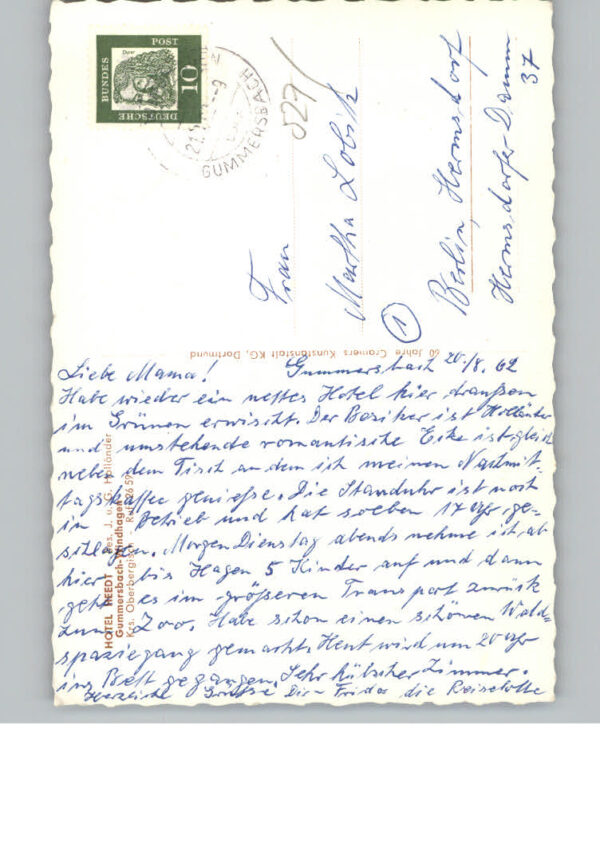 Liebe Mama! Gummersbach 20./8. 62
Habe wieder ein nettes Hotel hier draußen
im Grünen erwischt. Der Besitzer ist Holländer
und umstehende romantische Ecke ist gleich
neben dem Tisch an dem ich meinen Nachmit-
tagskaffee genieße. Die Standuhr ist noch
in Betrieb und hat soeben 17 Uhr ge-
schlagen. Morgen Dienstag abends nehme ich ab
hier bis Hagen 5 Kinder auf und dann
geht es im größeren Transport zurück
zum Zoo. Habe schon einen schönen Wald-
spaziegang gemacht. Heut wird um 20 Uhr
ins Bett gegangen. Sehr hübsches Zimmer.
Herzliche Grüße Dir Frida die Reiselotte
Frau
Martha Lobik
1
Berlin, Hermsdorf
Hermsdorfer-Damm
37
529/
DEUTSCHE
BUNDES
POST
10
Dürer
GUMMERSBACH
HOTEL HEEDT Bes. J. u. G. Holländer
Gummersbach-Windhagen
Krs. Oberbergisch - Ruf 2659
60 Jahre Cramers Kunstanstalt KG, Dortmund